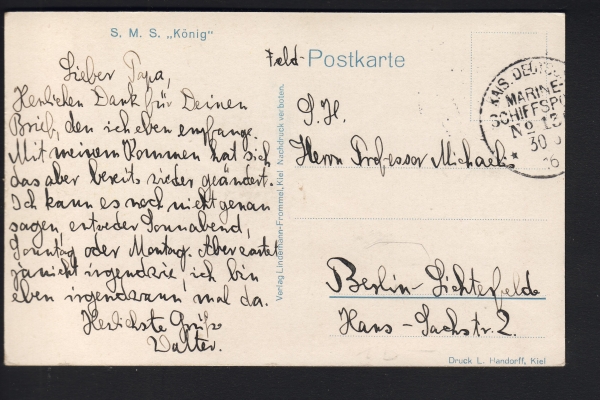 S. M. S. „König"
Lieber Papa,
Herzlichen Dank für Deinen
Brief, den ich eben empfange.
Mit meinem Kommen hat sich
das aber bereits wieder geändert.
Ich kann es noch nicht genau
sagen, entweder Sonnabend,
Sonntag oder Montag. Aber wartet
ja nicht irgendwie, ich bin
eben irgendwann mal da.
Herzlichste Grüße
Walter.
Feld-Postkarte
S. H.
Herrn Professor Michaelis
Berlin-Lichterfelde
Hans-Sachsstr. 2.
KAIS. DEUTSCHE
MARINE-
SCHIFFSPOST
No 13
30
16
Verlag Lindemann-Frommel, Kiel Nachdruck verboten.
Druck L. Handorff, Kiel